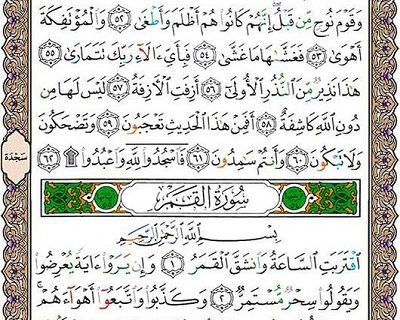 وَقَوْمَ نُوحٍ مِّن قَبْلُ ۖ إِنَّهُمْ كَانُوا۟ هُمْ أَظْلَمَ وَأَطْغَىٰ ٥٢ وَٱلْمُؤْتَفِكَةَ
أَهْوَىٰ ٥٣ فَغَشَّىٰهَا مَا غَشَّىٰ ٥٤ فَبِأَىِّ ءَالَآءِ رَبِّكَ تَتَمَارَىٰ ٥٥
هَـٰذَا نَذِيرٌ مِّنَ ٱلنُّذُرِ ٱلْأُولَىٰٓ ٥٦ أَزِفَتِ ٱلْـَٔازِفَةُ ٥٧ لَيْسَ لَهَا مِن
دُونِ ٱللَّهِ كَاشِفَةٌ ٥٨ أَفَمِنْ هَـٰذَا ٱلْحَدِيثِ تَعْجَبُونَ ٥٩ وَتَضْحَكُونَ
وَلَا تَبْكُونَ ٦٠ وَأَنتُمْ سَـٰمِدُونَ ٦١ فَٱسْجُدُوا۟ لِلَّهِ وَٱعْبُدُوا۟ ۩ ٦٢
سَجْدَة
سُورَةُ القَمَرِ
بِسْمِ ٱللَّهِ ٱلرَّحْمَـٰنِ ٱلرَّحِيمِ
ٱقْتَرَبَتِ ٱلسَّاعَةُ وَٱنشَقَّ ٱلْقَمَرُ ١ وَإِن يَرَوْا۟ ءَايَةً يُعْرِضُوا۟
وَيَقُولُوا۟ سِحْرٌ مُّسْتَمِرٌّ ٢ وَكَذَّبُوا۟ وَٱتَّبَعُوٓا۟ أَهْوَآءَهُمْ ۚ